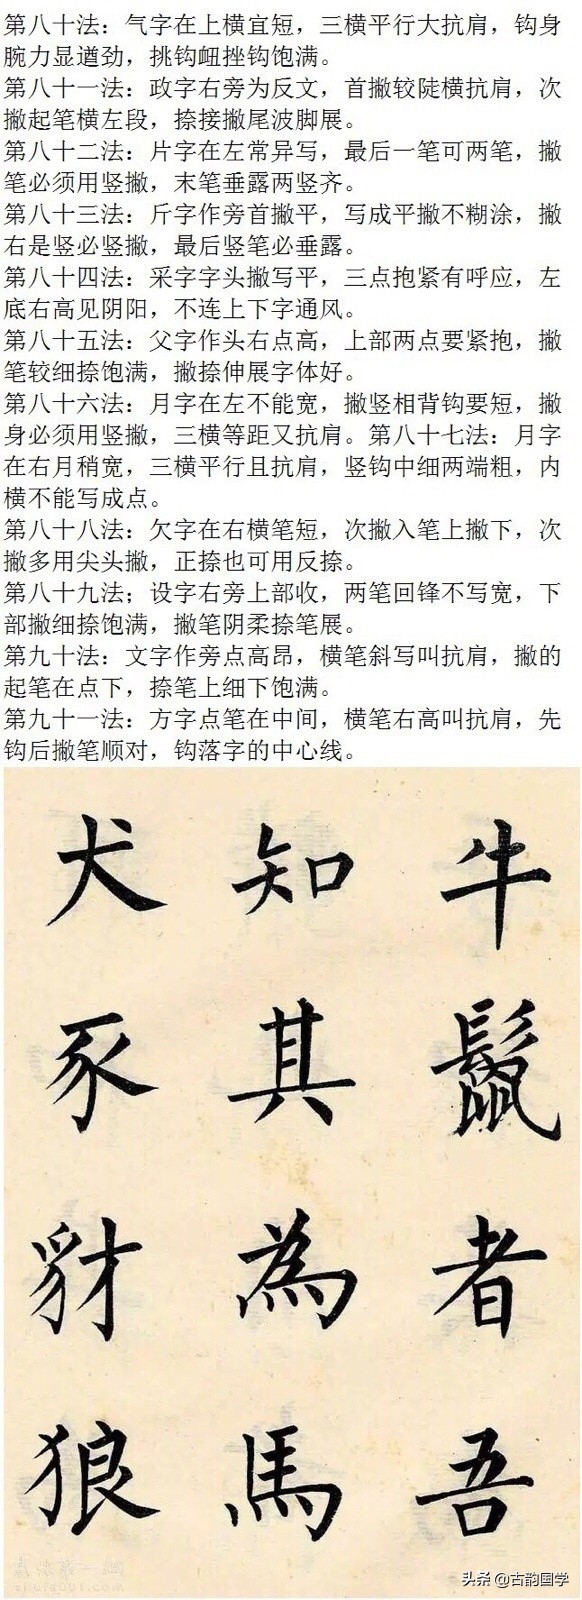 第八十法：气字在上横宜短，三横平行大抗肩，钩身
腕力显遒劲，挑钩衄挫钩饱满。
第八十一法：政字右旁为反文，首撇较陡横抗肩，次
撇起笔横左段，捺接撇尾波脚展。
第八十二法：片字在左常异写，最后一笔可两笔，撇
笔必须用竖撇，末笔垂露两竖齐。
第八十三法：斤字作旁首撇平，写成平撇不糊涂，撇
右是竖必竖撇，最后竖笔必垂露。
第八十四法：采字字头撇写平，三点抱紧有呼应，左
底右高见阴阳，不连上下字通风。
第八十五法：父字作头右点高，上部两点要紧抱，撇
笔较细捺饱满，撇捺伸展字体好。
第八十六法：月字在左不能宽，撇竖相背钩要短，撇
身必须用竖撇，三横等距又抗肩。第八十七法：月字
在右月稍宽，三横平行且抗肩，竖钩中细两端粗，内
横不能写成点。
第八十八法：欠字在右横笔短，次撇入笔上撇下，次
撇多用尖头撇，正捺也可用反捺。
第八十九法；设字右旁上部收，两笔回锋不写宽，下
部撇细捺饱满，撇笔阴柔捺笔展。
第九十法：文字作旁点高昂，横笔斜写叫抗肩，撇的
起笔在点下，捺笔上细下饱满。
第九十一法：方字点笔在中间，横笔右高叫抗肩，先
钩后撇笔顺对，钩落字的中心线。
牛鬣者吾
知其為馬
犬豕豺狼
头条 @古韵国学